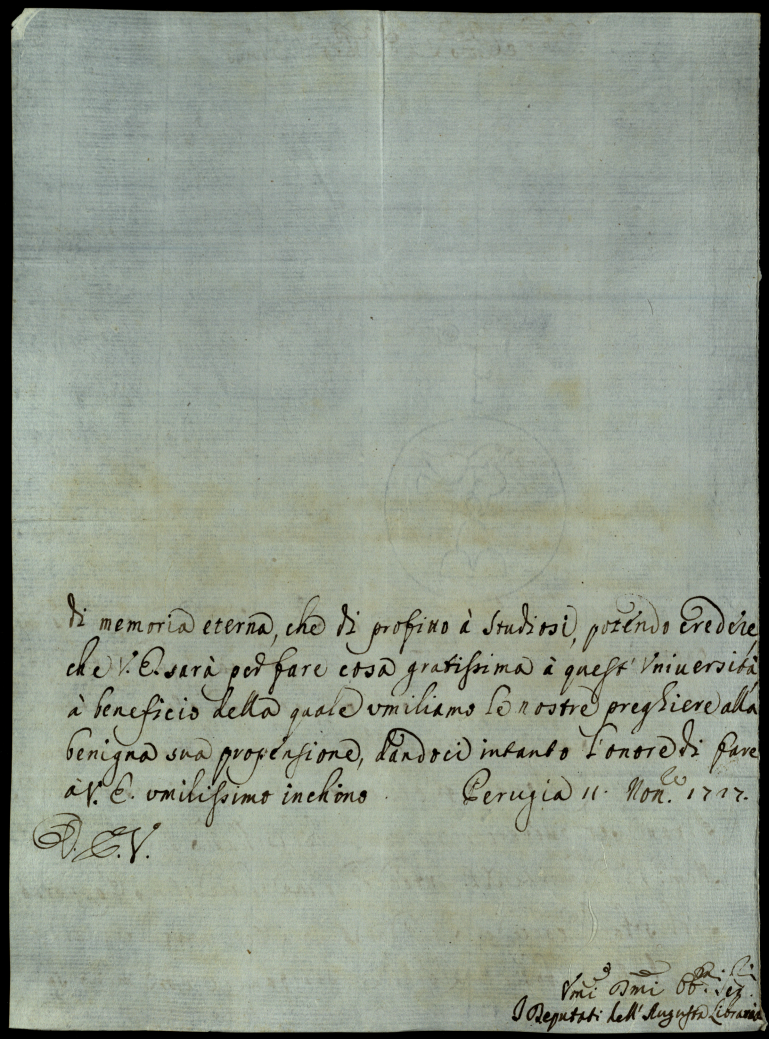 di memoria eterna, che di profitto à Studiosi, potendo credere,
che V. E. sarà per fare cosa gratissima à quest' Vniversità,
à beneficio della quale vmiliamo le nostre preghiere alla
benigna sua propensione, dandoci intanto l'onore di fare
à V. E. vmilissimo inchino. Perugia 11. Nov.re 1727.
D. E. V.
Vmi Dmi
I Deputati dell' Augusta Libraria